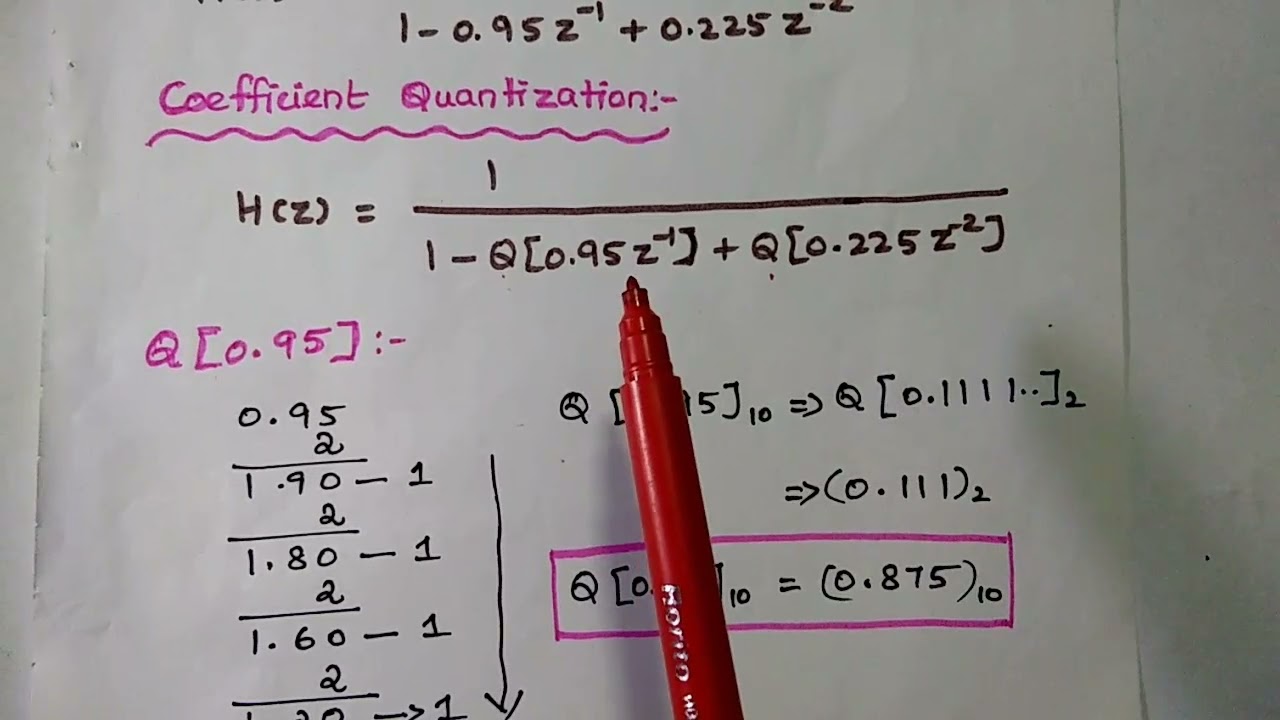 1 - 0.95 z⁻¹ + 0.225 z⁻²
Coefficient Quantization:-
1
H(z) =
1 - Q[0.95 z⁻¹] + Q[0.225 z⁻²]
Q[0.95]:-
0.95
2
1.90 - 1
2
1.80 - 1
2
1.60 - 1
2
→ 1
Q [ 5]₁₀ => Q [0.1111..]₂
=> (0.111)₂
Q [0. ]₁₀ = (0.875)₁₀